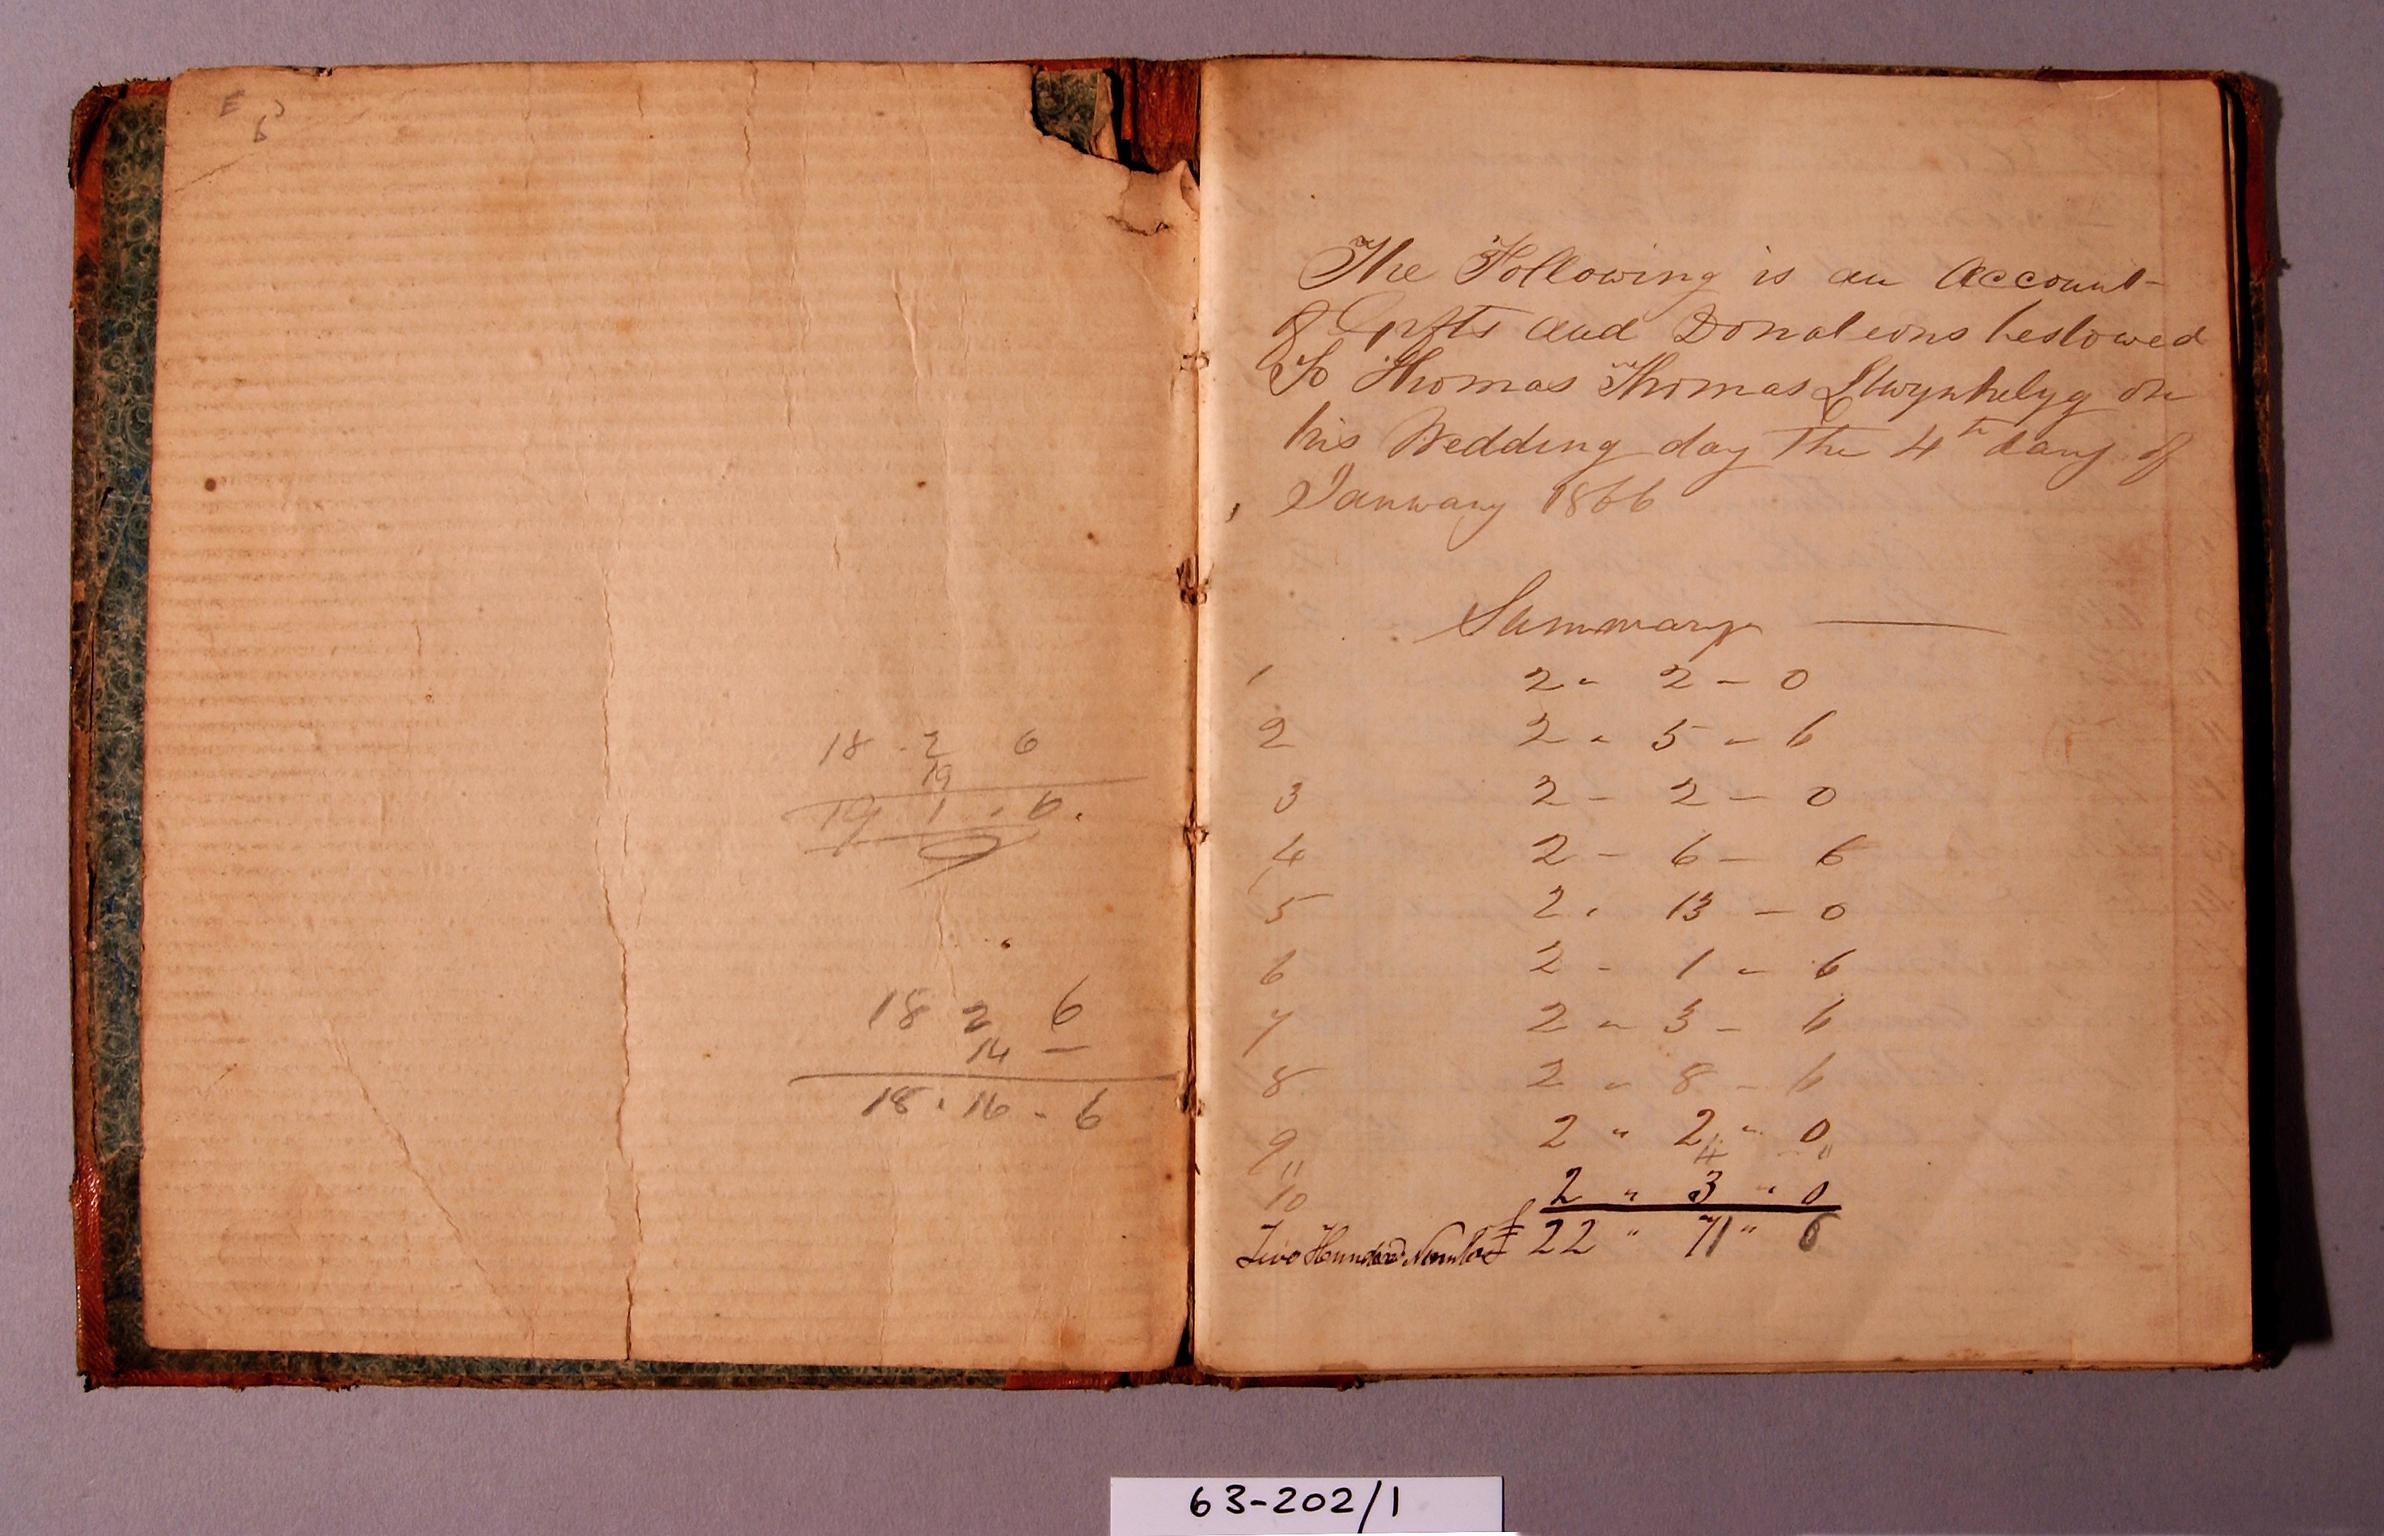 E
6
18 - 2 6
19
19 1 " 6.
18 2 6
14 —
18 " 16 - 6
The Following is an Account
of Gifts and Donations bestowed
To Thomas Thomas Llwynhelyg on
his Wedding day The 4th day of
January 1866
Summary
1 2 - 2 - 0
2 2 " 5 - 6
3 2 - 2 - 0
4 2 - 6 - 6
5 2 " 13 - 0
6 2 - 1 - 6
7 2 - 3 - 6
8 2 - 8 - 6
9 2 " 2 " 0
4
10 2 " 3 " 0
Two Hundred £ 22 " 71 " 6
63-202/1